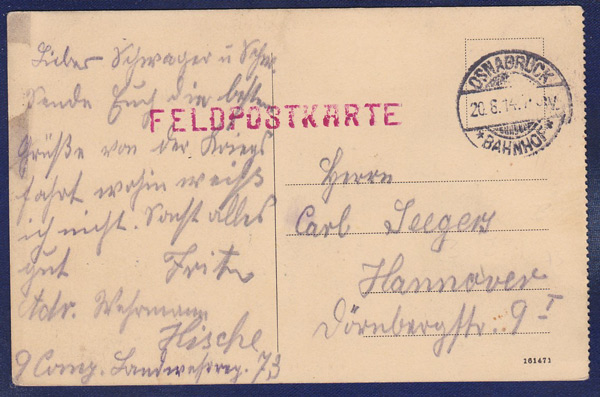 Lieber Schwager u Schw.
Sende Euch die besten
Grüße von der Kriegs
fahrt wohin weiß
ich nicht. Sonst alles
gut Fritz
Adr. Wehrmann
Hische
9 Comp. Landwehrreg. 73
FELDPOSTKARTE
OSNABRÜCK
20.8.14.
*BAHNHOF*
Herrn
Carl Seegers
Hannover
Dörnbergstr. 9 I
161471